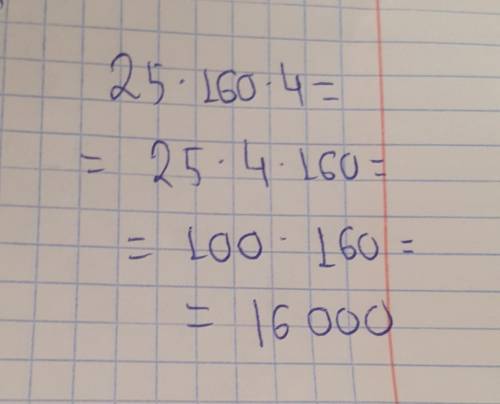 25·160·4=
= 25·4·160=
= 100·160=
= 16 000